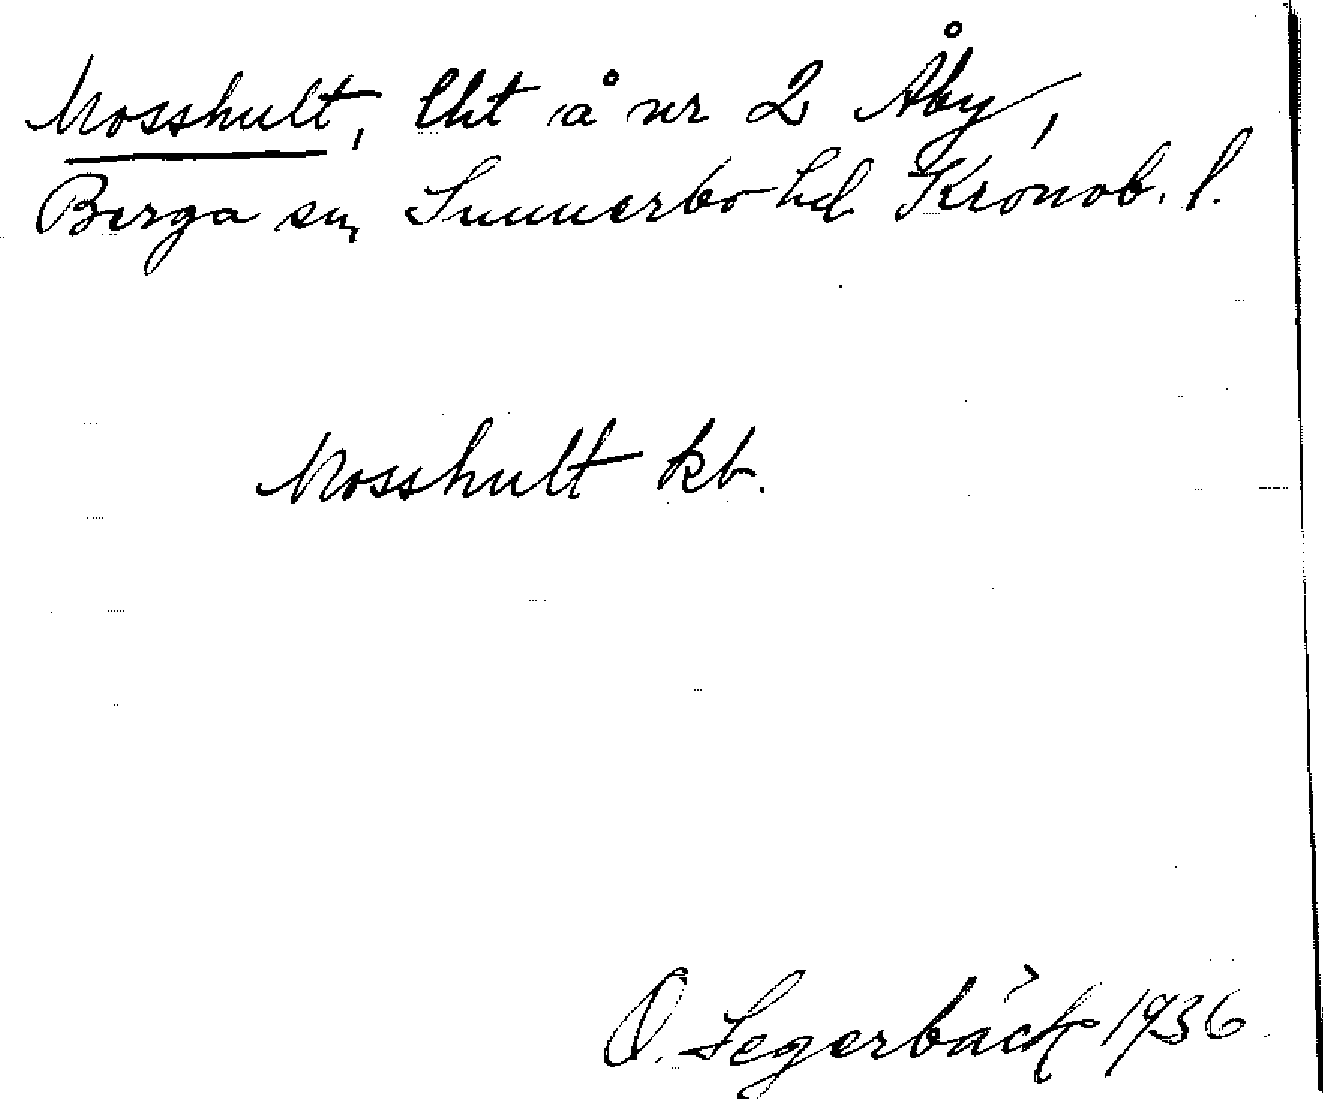 Mosshult, lht å nr 2 Åby,
Berga sn, Sunnerbo hd Kronob. l.
Mosshult kb.
O. Segerbäck 1936